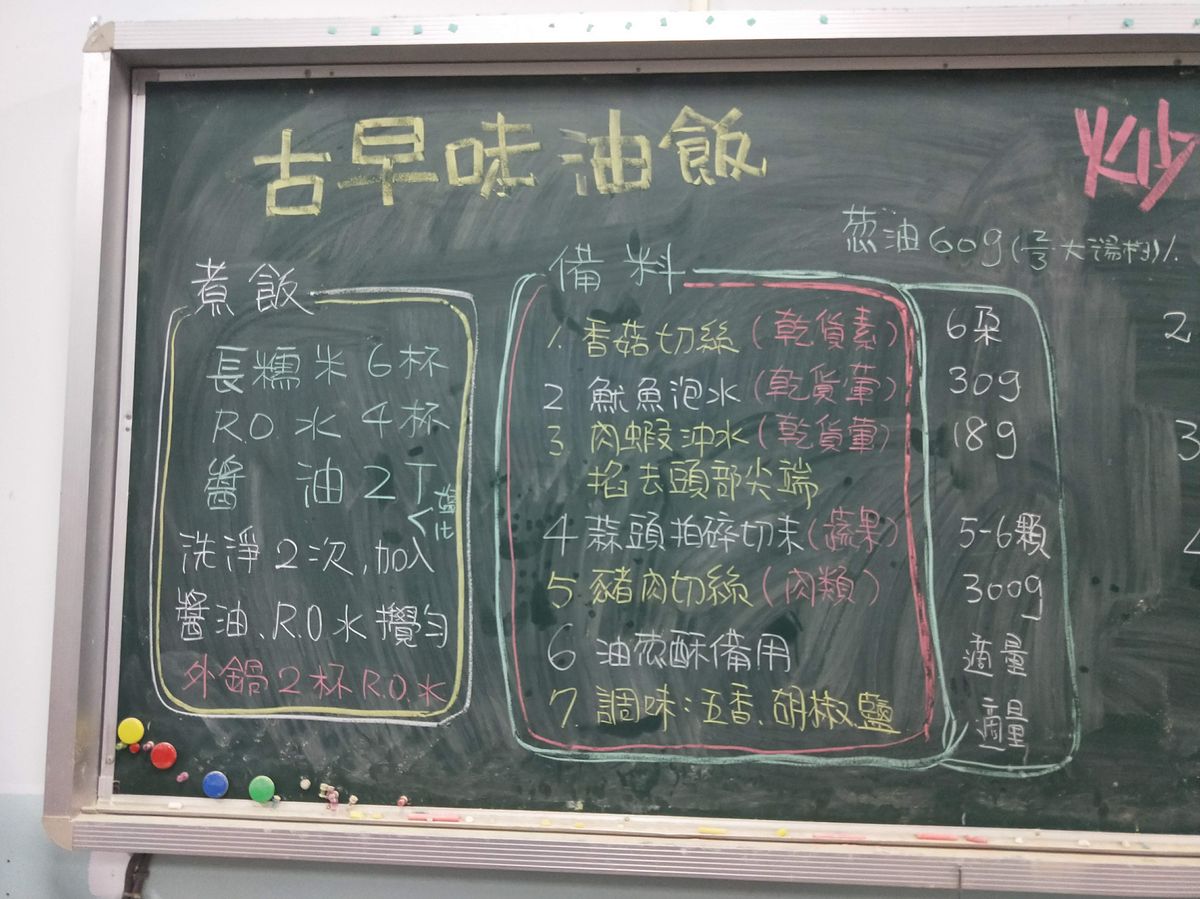 古早味油飯
炒
葱油60g(2/3大湯杓)
煮飯
長糯米6杯
R.O.水4杯
醬油2T
洗淨2次,加入
醬油、R.O水攪勻
外鍋2杯R.O.水
備料
1. 香菇切絲(乾貨素) 6朵
2 魷魚泡水(乾貨葷) 30g
3 肉蝦沖水(乾貨葷) 18g
掐去頭部尖端
4 蒜頭拍碎切末(蔬果) 5-6顆
5 豬肉切絲(肉類) 300g
6 油葱酥備用 適量
7. 調味:五香、胡椒、鹽 適量
2
3